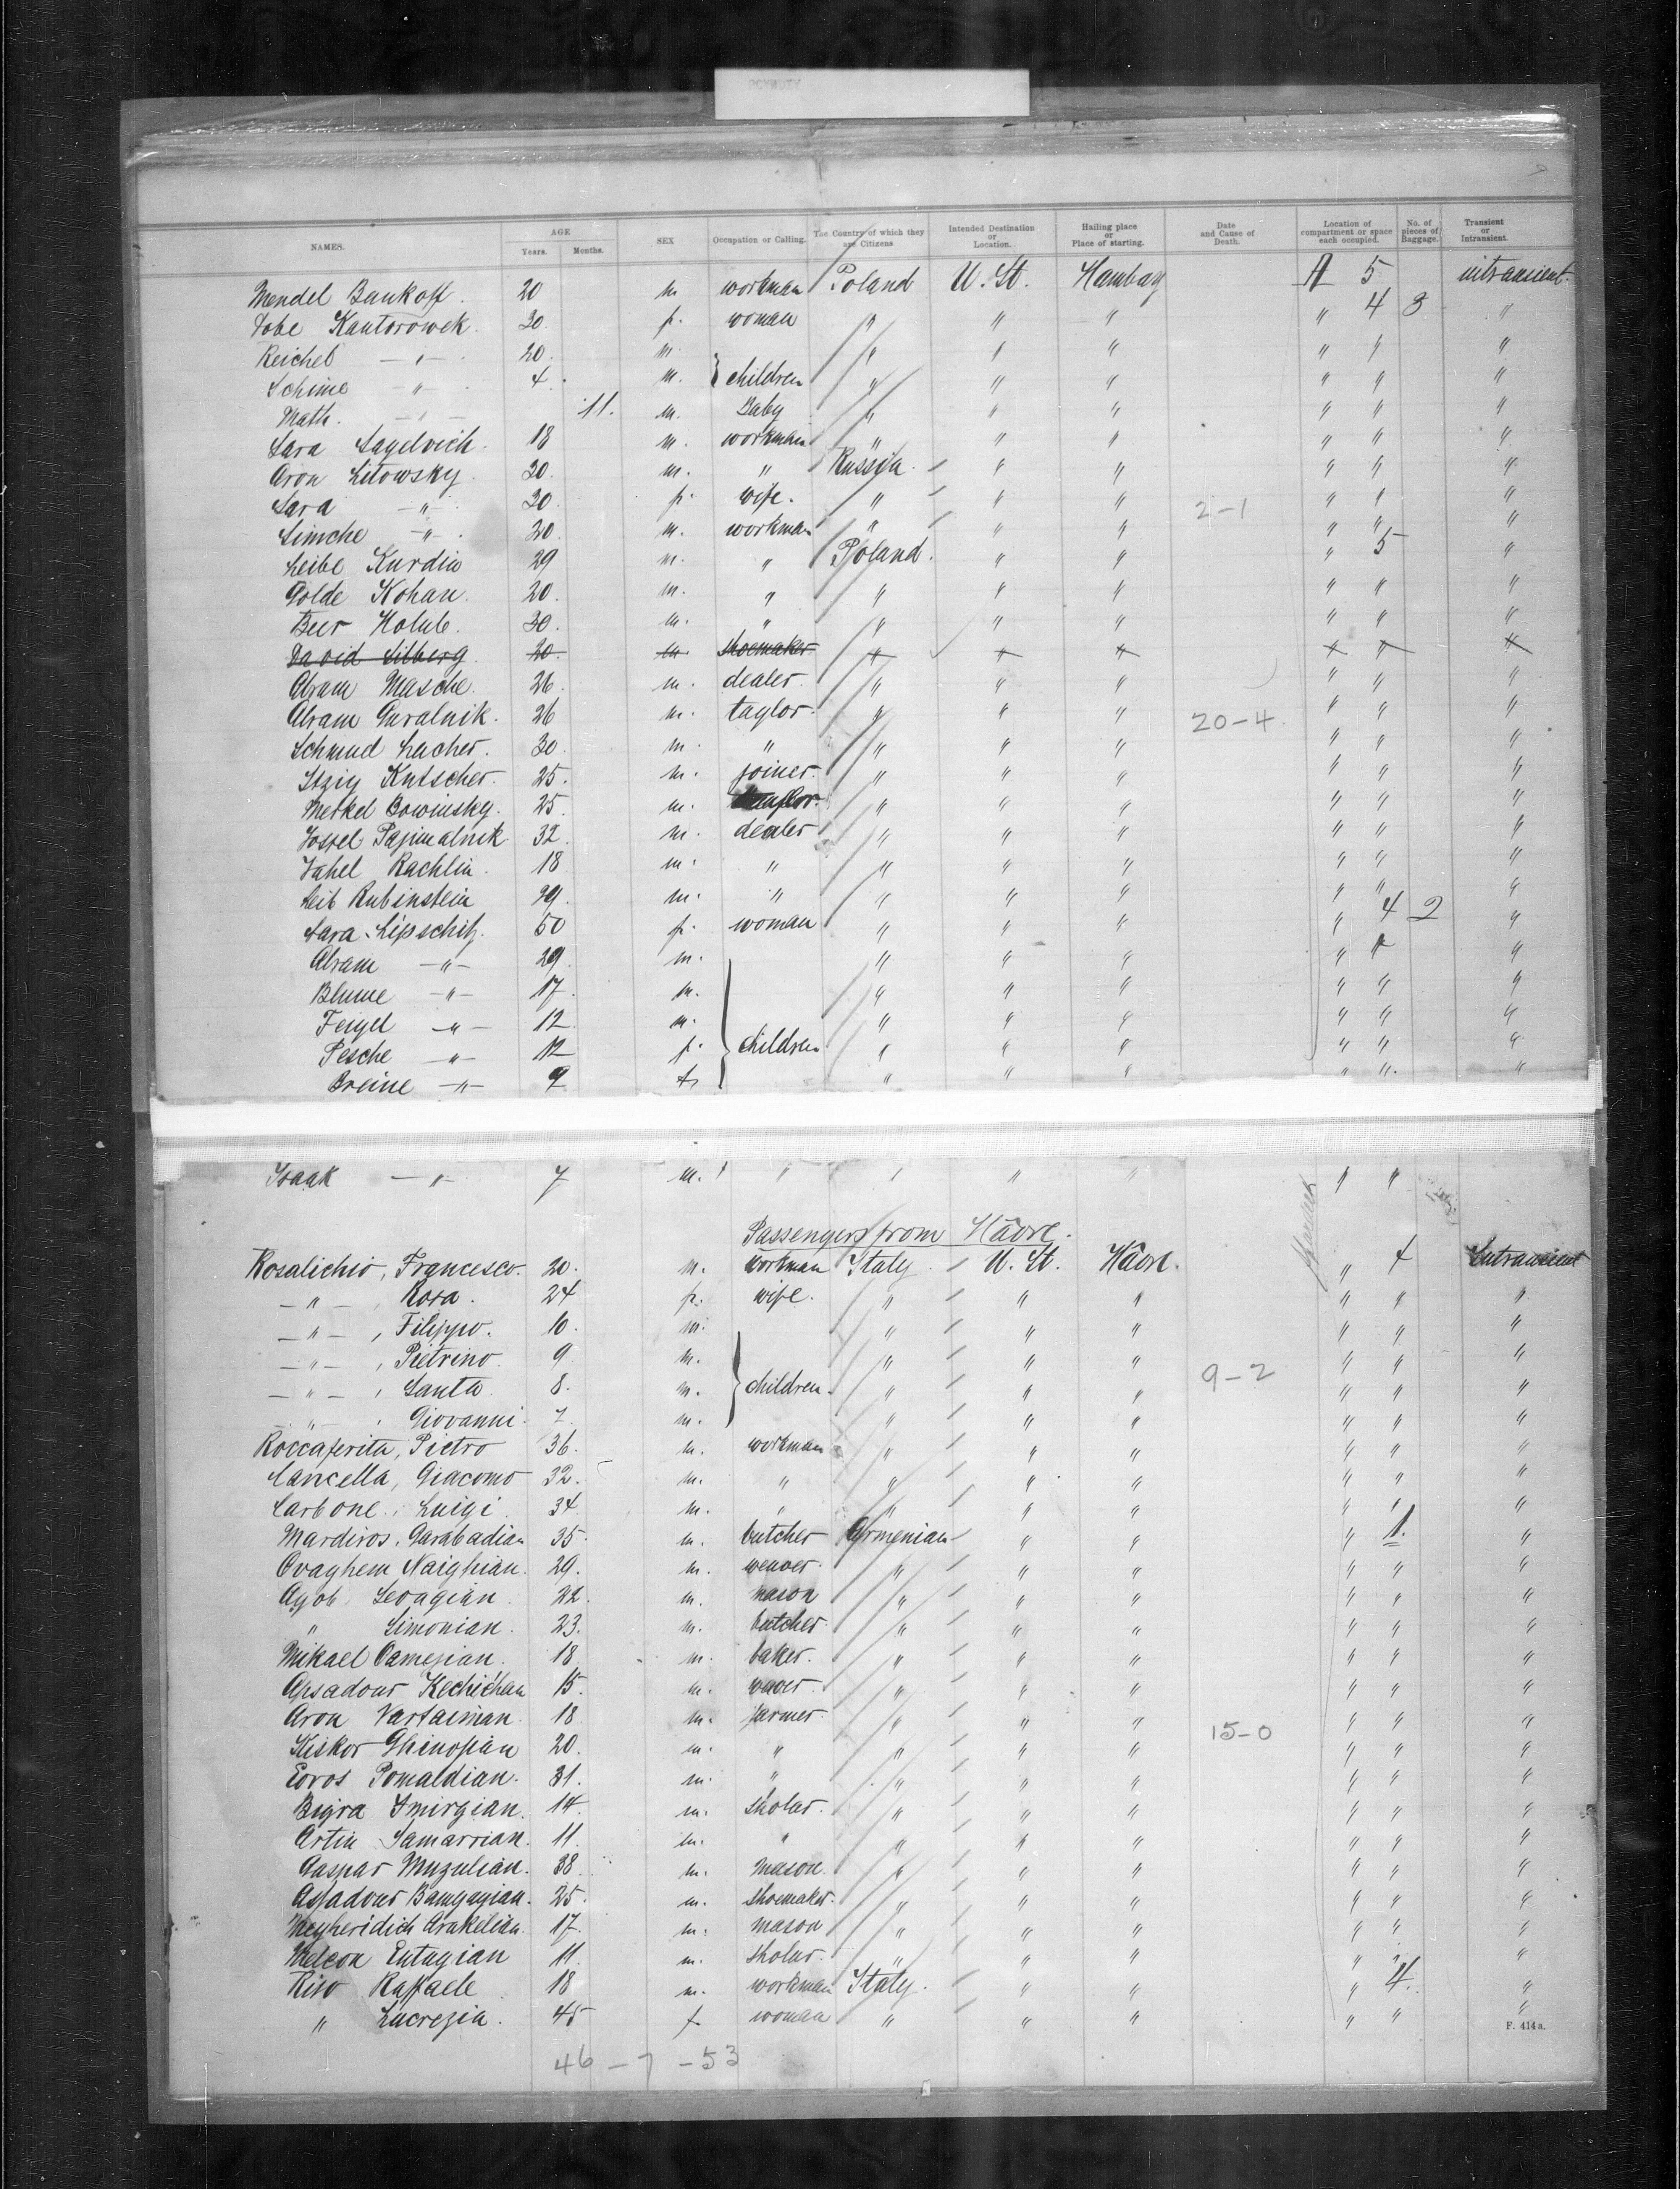 NAMES. AGE Years. Months. SEX Occupation or Calling. The Country of which they are Citizens Intended Destination or Location. Hailing place or Place of starting. Date and Cause of Death. Location of compartment or space each occupied. No. of pieces of Baggage. Transient or Intransient.
Mendel Bankoff. 20 m workman Poland U. St. Hambag A 5 intransient.
Tobe Kantorowek. 30. f. woman " " " " 4 3 "
Reichel — " — 20. m. " " " " " "
Schime — " — 4. m. } children " " " " " "
Math. — " — 11. m. Baby " " " " " "
Sara Sagelvich. 18 m. workman " " " " " "
Aron Litowsky. 30. m. " Russia. " " " " "
Sara — " — 30. f. wife. " " " 2-1 " " "
Simche — " — 20. m. workman " " " " " "
Leibe Kurdin 29 m. " Poland. " " " 5 "
Golde Kohan. 20. m. " " " " " " "
Beer Holub. 30. m. " " " " " " "
David Silberg 20. m. shoemaker " " " " " "
Abram Masche. 26. m. dealer. " " " " " "
Abram Guralnik. 26 m. taylor. " " " 20-4. " " "
Schmud Lacher. 30. m. " " " " " " "
Itzig Kutscher. 25. m. joiner. " " " " " "
Merkel Bowinsky. 25. m. " " " " " "
Jossel Pajimalnik 32. m. dealer " " " " " "
Jahel Rachlin. 18 m. " " " " " " "
Leib Rubinstein 29. m. " " " " " " "
Sara Lipschitz. 50 f. woman " " " " 4 2 "
Abram — " — 29. m. " " " " " "
Blume — " — 17. m. " " " " " "
Feigel — " — 12 m. " " " " " "
Pesche — " — 12 f. } children " " " " " "
Breine — " — 9 f. " " " " " "
Isaak — " — 7 m. " " " " " " "
Passengers from Hâvre.
Rosalichio, Francesco. 20. m. workman Italy. U. St. Hâvre. " 4 Intransient
— " — , Rosa. 24 f. wife. " " " " " "
— " — , Filippo. 10. m. " " " " " "
— " — , Pietrino. 9 m. " " " " " "
— " — , Santa. 8. m. } children. " " " 9-2 " " "
— " — , Giovanni. 7. m. " " " " " "
Roccaferita, Pietro 36. m. workman " " " " " "
Cancella, Giacomo 32. m. " " " " " " "
Carbone, Luigi. 34 m. " " " " " " "
Mardiros, Garabadian 35 m. butcher Armenian " " " 1. "
Ovaghem Naighian. 29. m. weaver. " " " " " "
Agob. Sevagian. 22. m. mason " " " " " "
" Simonian. 23. m. butcher. " " " " " "
Mikael Damesian. 18. m. baker. " " " " " "
Apsadour Kechichan 15. m. waver. " " " " " "
Aron Vartaiman. 18 m. farmer. " " " " " "
Kiskor Ghinopian 20. m. " " " " 15-0 " " "
Eoros Pomaldian. 31. m. " " " " " " "
Bigra Smirgian. 14. m. sholar. " " " " " "
Artin Samarrian. 11. m. " " " " " " "
Gaspar Muzulian. 38. m. mason. " " " " " "
Aspadour Bamgagian. 25. m. shoemaker. " " " " " "
Megheridich Arakelian. 17. m. mason " " " " " "
Melcon Eutugian 11. m. sholar. " " " " " "
Riso Raffaele 18 m. workman Italy. " " " 4. "
" Lucrezia. 45 f. woman " " " " " "
F. 414a.
46 - 7 - 53